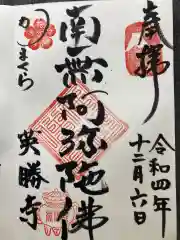 奉拝
令和四年
十二月六日
南無阿弥陀仏
かまくら
英勝寺